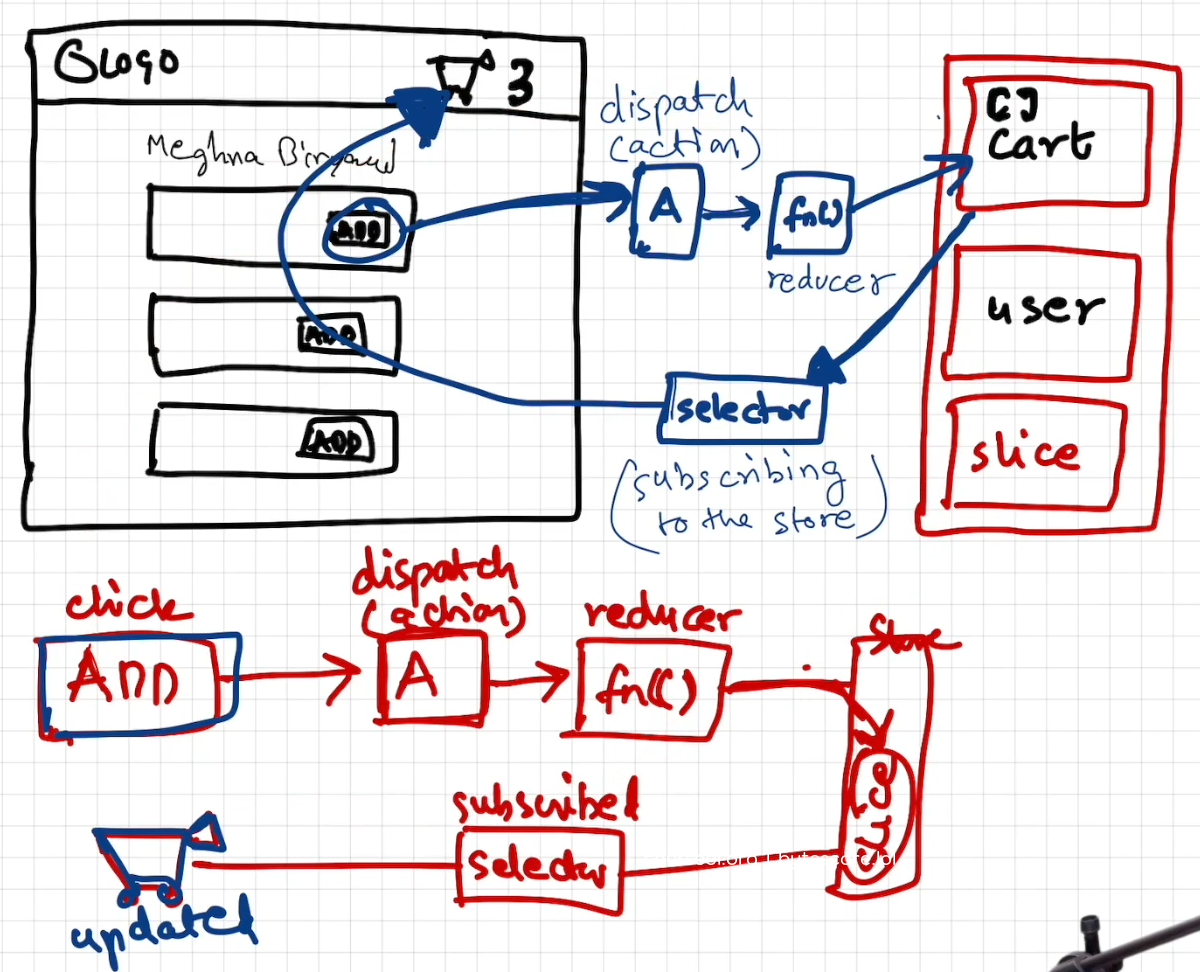 Logo
3
Meghna
ADD
ADD
ADD
dispatch
(action)
A
fn()
reducer
[]
cart
user
slice
selector
(subscribing
to the store)
click
ADD
dispatch
(action)
A
reducer
fn()
Store
slice
subscribed
selector
updated